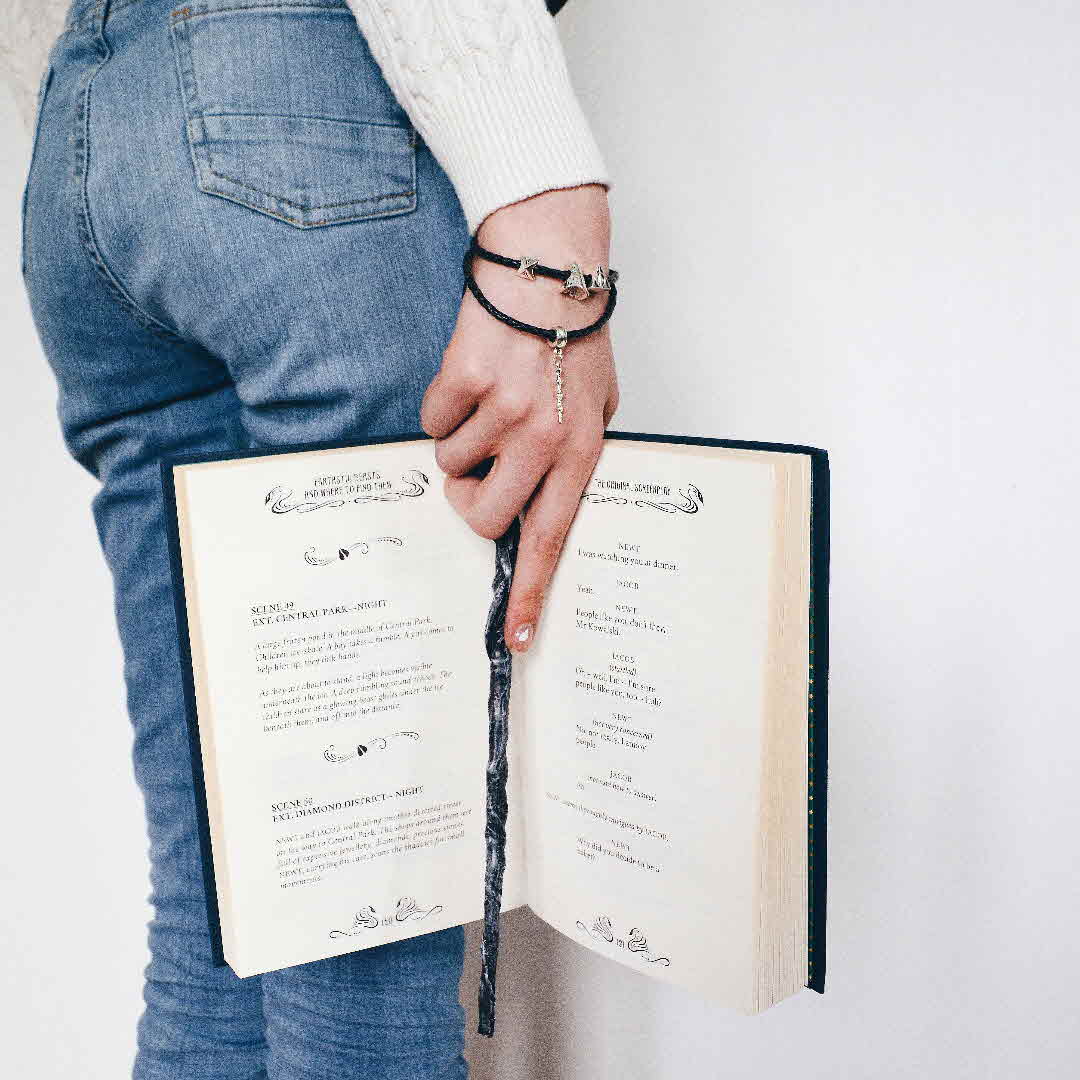 FANTASTIC BEASTS
AND WHERE TO FIND THEM
SCENE 49
EXT. CENTRAL PARK—NIGHT
A large frozen pond in the middle of Central Park.
Children ice skate. A boy takes a tumble. A girl comes to
help him up, they link hands.
As they are about to stand, a light becomes visible
underneath the ice. A deep rumbling sound echoes. The
children stare as a glowing beast glides under the ice
beneath them, and off into the distance.
SCENE 50
EXT. DIAMOND DISTRICT—NIGHT
NEWT and JACOB walk along another deserted street
on the way to Central Park. The shops around them are
full of expensive jewellery, diamonds, precious stones.
NEWT, carrying his case, scans the shadows for small
movements.
THE ORIGINAL SCREENPLAY
NEWT
I was watching you at dinner.
JACOB
Yeah.
NEWT
People like you, don't they,
Mr Kowalski.
JACOB
(startled)
Oh – well, I'm – I'm sure
people like you, too – huh?
NEWT
(not very concerned)
No, not really. I annoy
people.
JACOB
NEWT
Why did you decide to be a
baker?